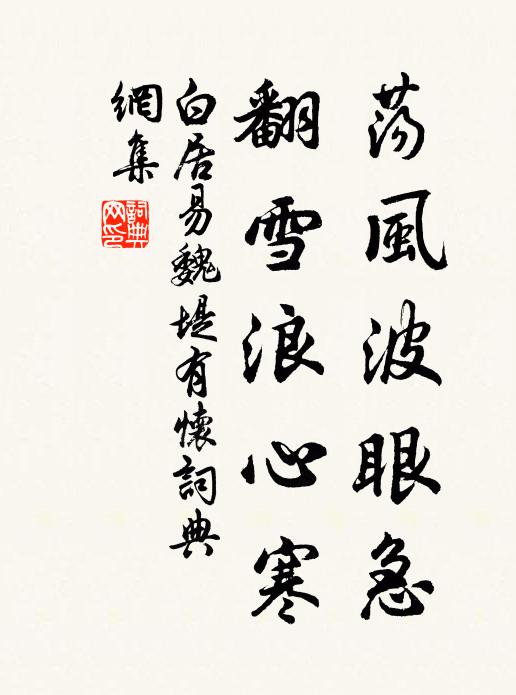 荡風波眼急
翻雪浪心寒
白居易魏堤有懷詞典
網集
詞典
网印